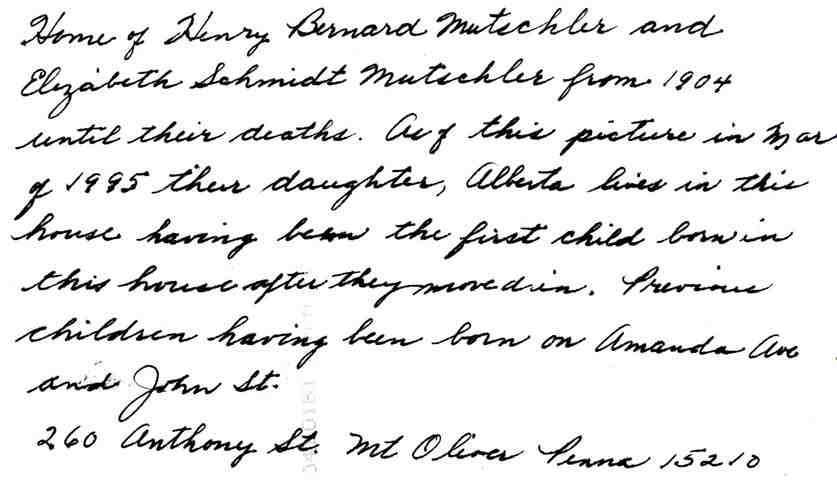 Home of Henry Bernard Mutschler and
Elizabeth Schmidt Mutschler from 1904
until their deaths. As of this picture in Mar
of 1995 their daughter, Alberta lives in this
house having been the first child born in
this house after they moved in. Previous
children having been born on Amanda Ave
and John St.
260 Anthony St. Mt Oliver Penna 15210